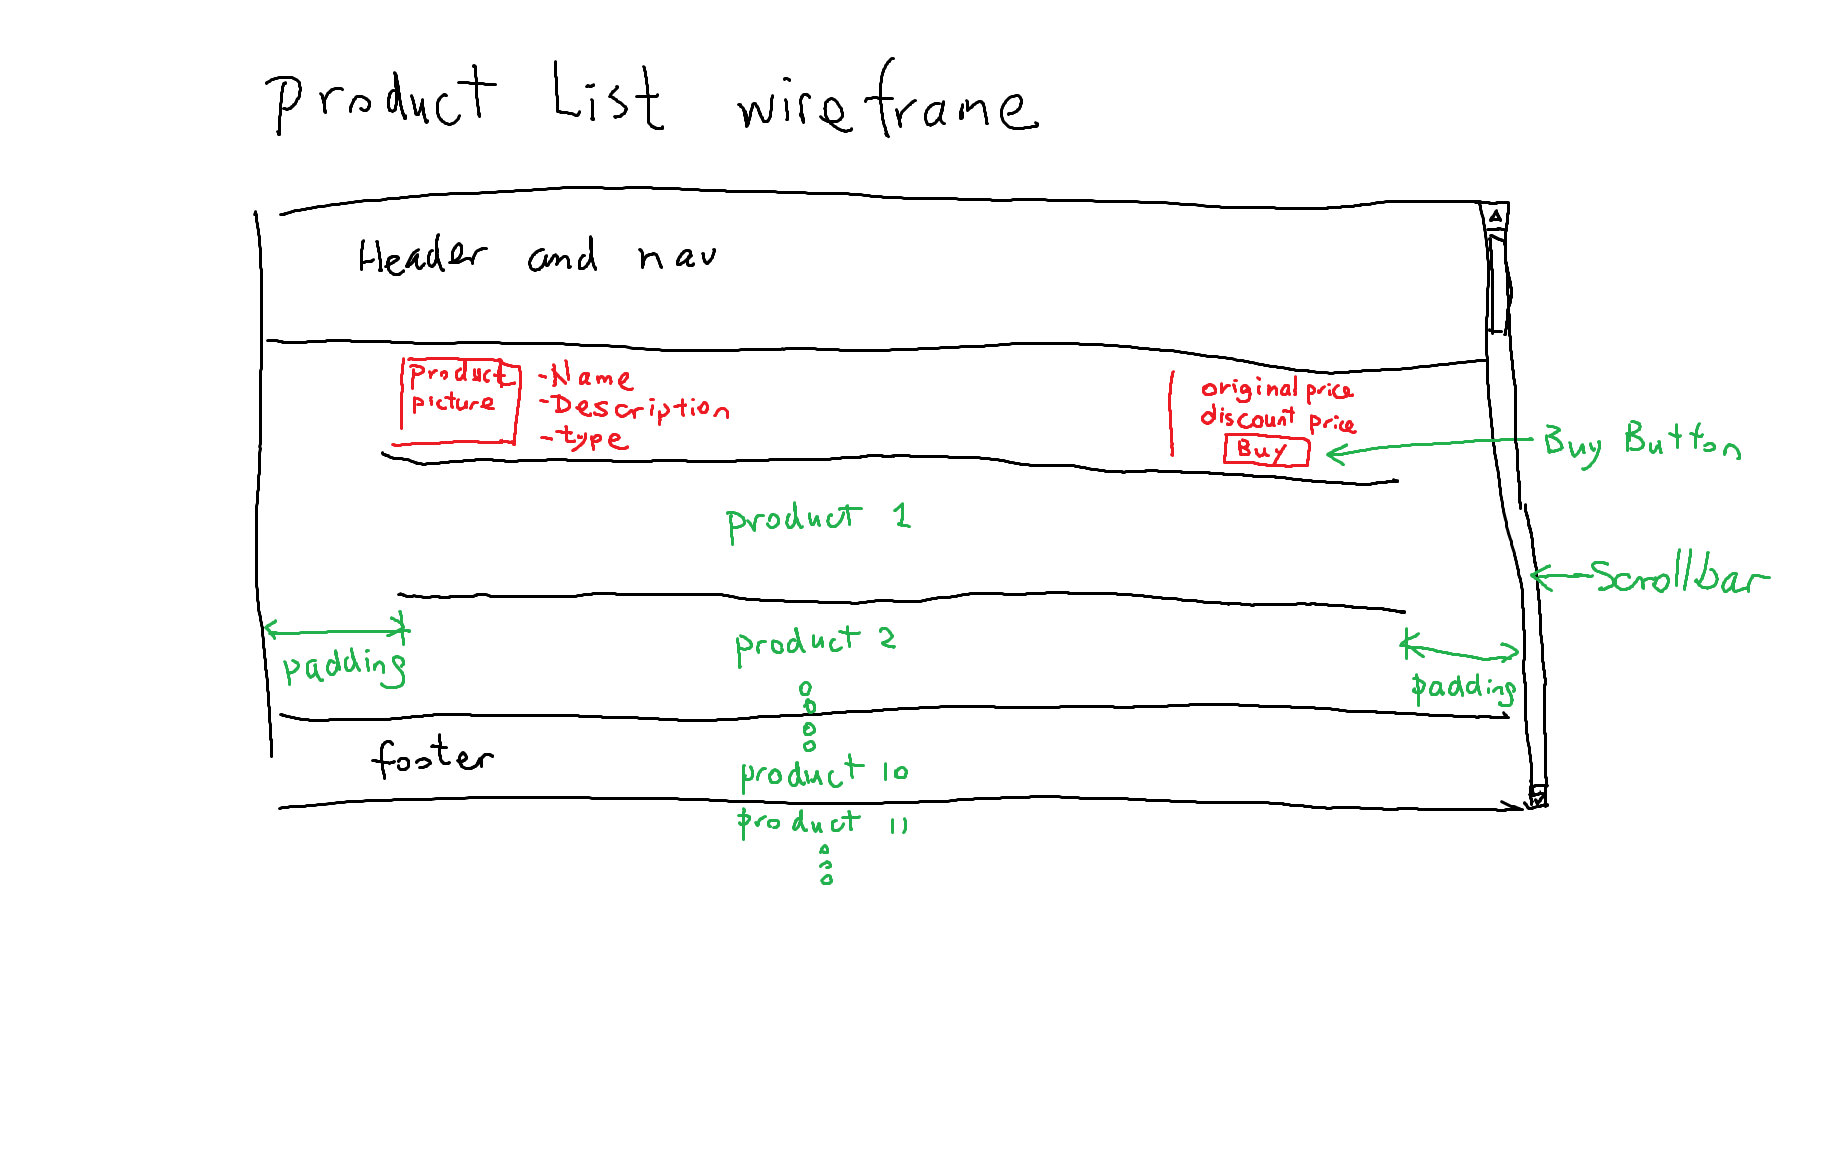 Product List wireframe
Header and nav
Product
picture
-Name
-Description
-type
original price
discount price
Buy
Buy Button
product 1
Scrollbar
padding
product 2
padding
footer
product 10
product 11